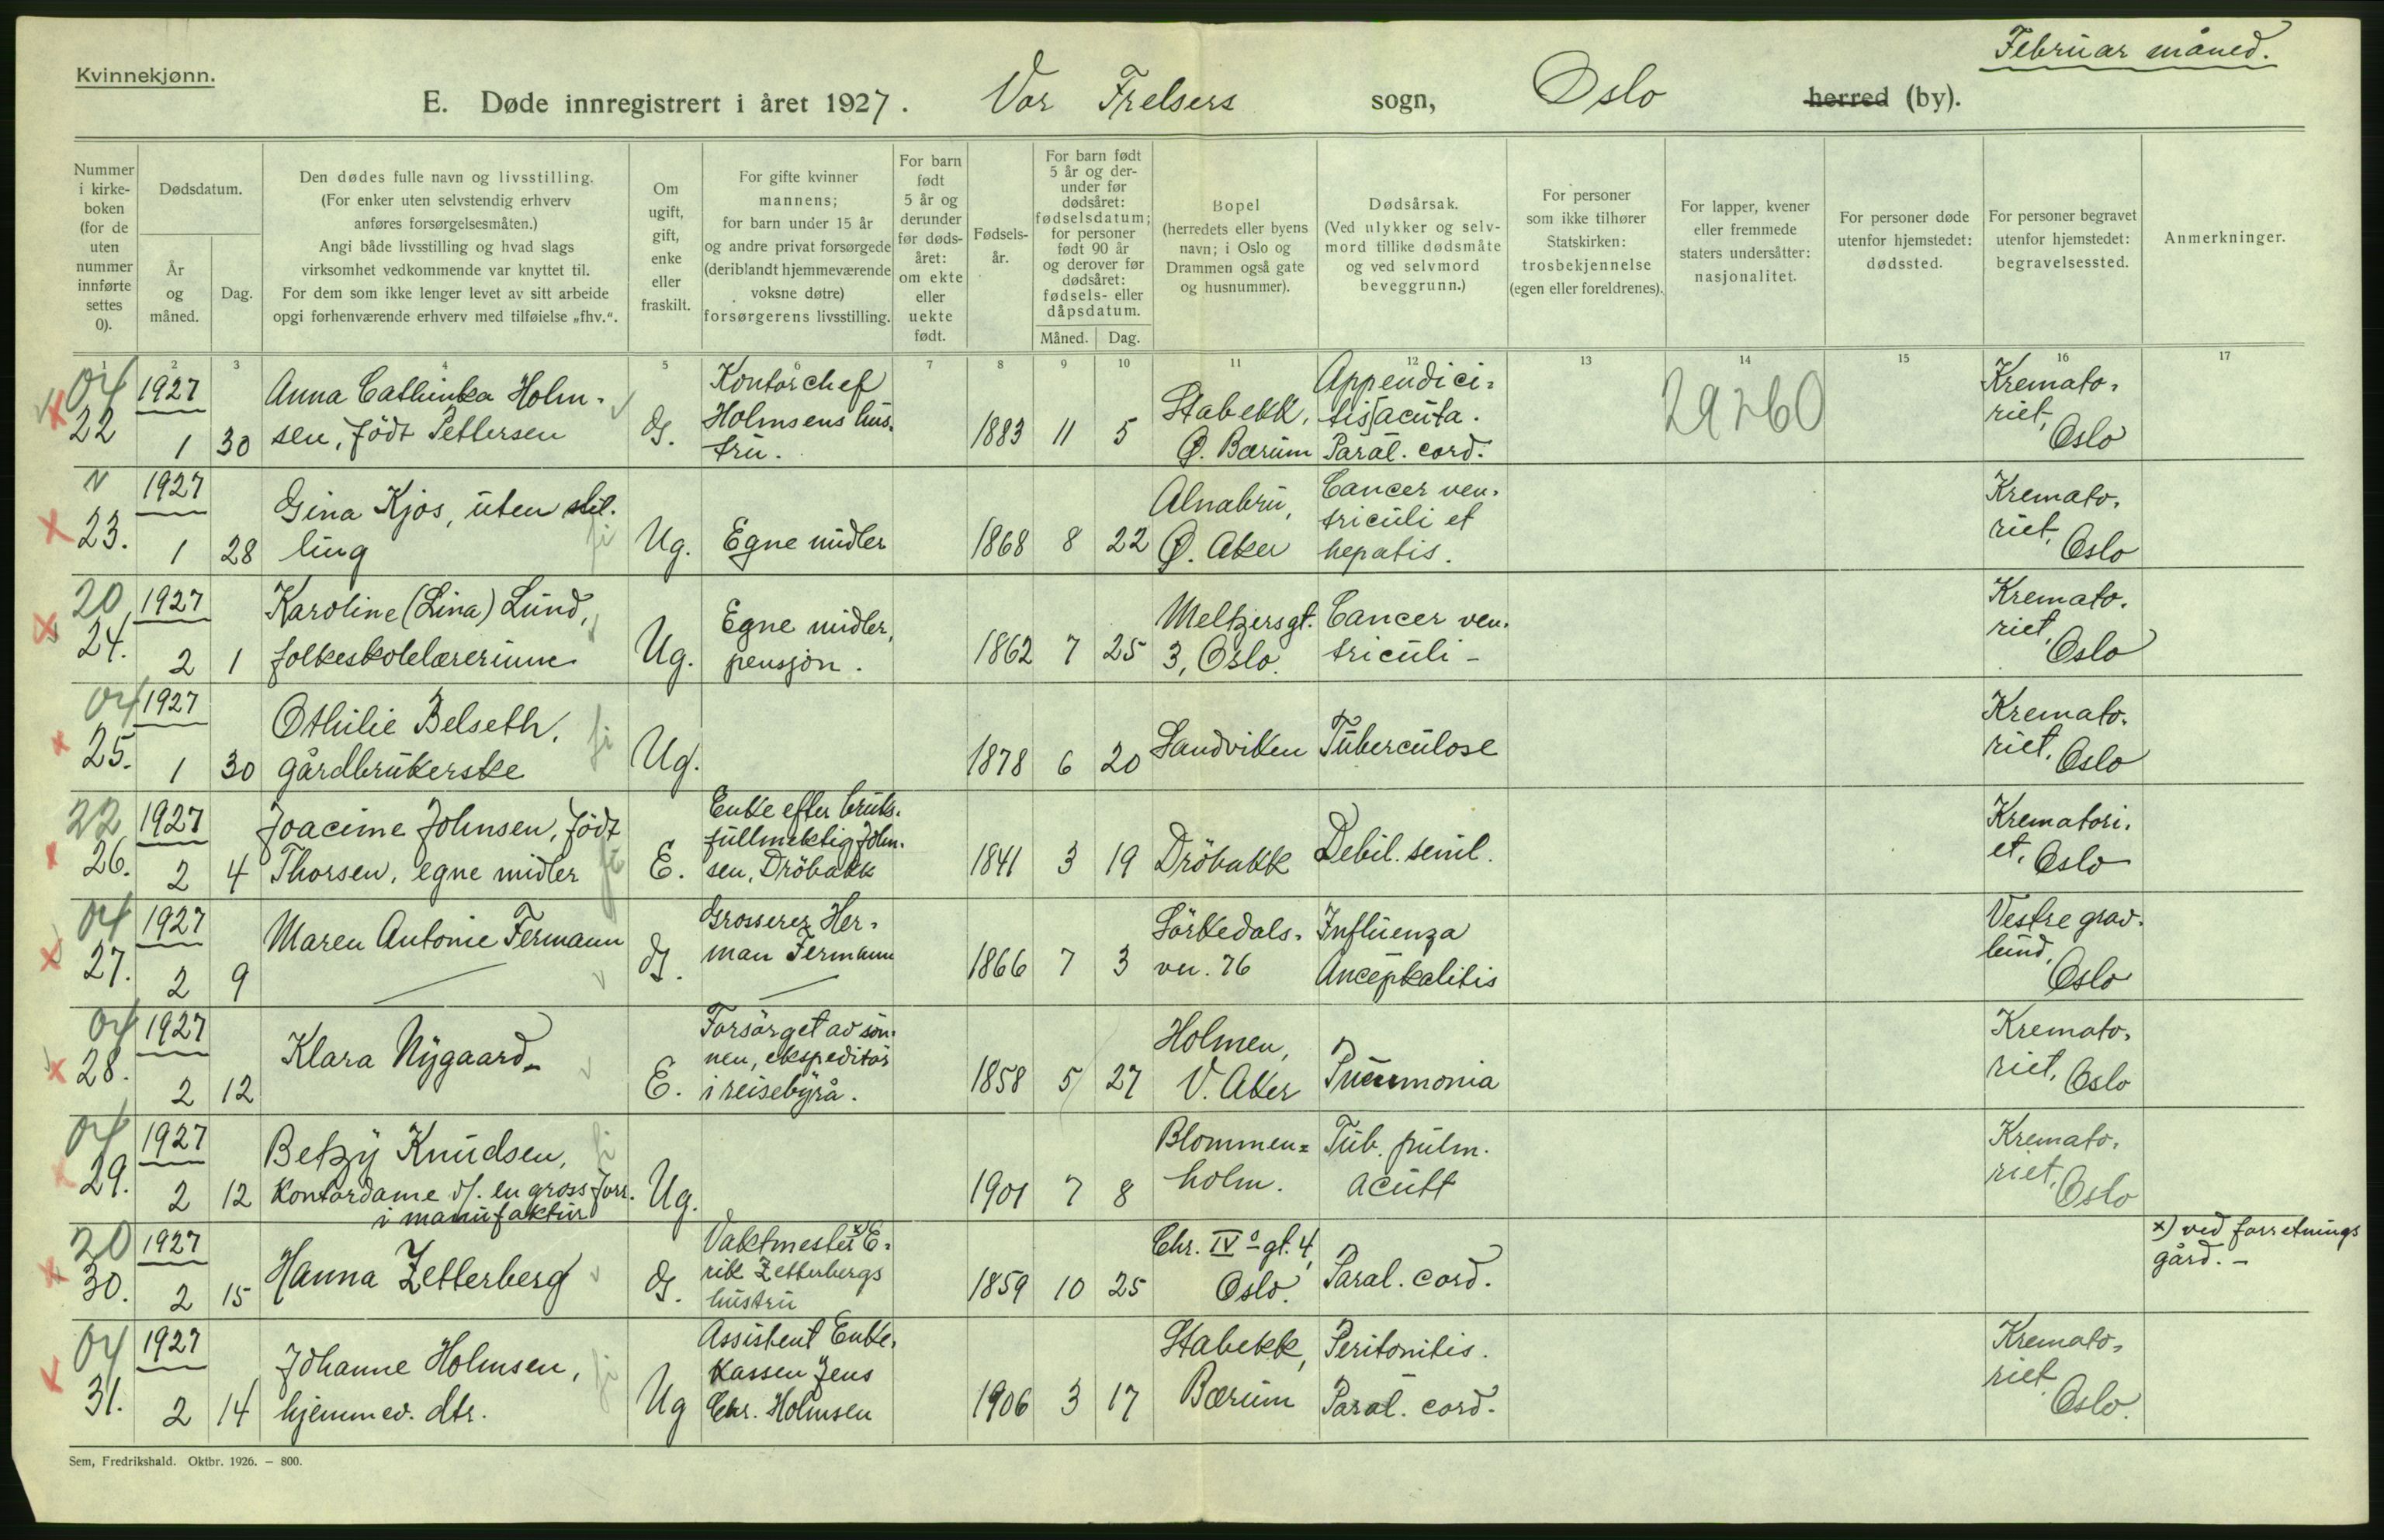 Februar måned.
Kvinnekjønn.
E. Døde innregistrert i året 1927. Vor Frelsers sogn, Oslo herred (by).
Nummer i kirke-boken (for de uten nummer innførte settes 0).
Dødsdatum.
År og måned.
Dag.
Den dødes fulle navn og livsstilling.
(For enker uten selvstendig erhverv
anføres forsørgelsesmåten.)
Angi både livsstilling og hvad slags
virksomhet vedkommende var knyttet til.
For dem som ikke lenger levet av sitt arbeide
opgi forhenværende erhverv med tilføielse „fhv.“.
Om ugift, gift, enke eller fraskilt.
For gifte kvinner
mannens;
for barn under 15 år
og andre privat forsørgede
(deriblandt hjemmeværende
voksne døtre)
forsørgerens livsstilling.
For barn født 5 år og derunder før døds-året: om ekte eller uekte født.
Fødsels-år.
For barn født
5 år og der-
under før
dødsåret:
fødselsdatum;
for personer
født 90 år
og derover før
dødsåret:
fødsels- eller
dåpsdatum.
Måned. Dag.
Bopel
(herredets eller byens
navn; i Oslo og
Drammen også gate
og husnummer).
Dødsårsak.
(Ved ulykker og selv-
mord tillike dødsmåte
og ved selvmord
beveggrunn.)
For personer
som ikke tilhører
Statskirken:
trosbekjennelse
(egen eller foreldrenes).
For lapper, kvener
eller fremmede
staters undersåtter:
nasjonalitet.
For personer døde
utenfor hjemstedet:
dødssted.
For personer begravet
utenfor hjemstedet:
begravelsessted.
Anmerkninger.
1 2 3 4 5 6 7 8 9 10 11 12 13 14 15 16 17
04
22
1927
1 30
Anna Cathinka Holm-
sen, født Pettersen
G.
Kontorchef
Holmsens hus-
tru.
1883 11 5
Stabekk,
Ø. Bærum
Appendici-
tis acuta.
Paral. cord.
29260
Kremato-
riet,
Oslo
23.
1927
1 28
Gina Kjos, uten stil-
ling
Ug.
Egne midler
1868 8 22
Alnabru,
Ø. Aker
Cancer ven-
triculi et
hepatis.
Kremato-
riet,
Oslo
20
24.
1927
2 1
Karoline (Lina) Lund,
folkeskolelærerinne
Ug.
Egne midler,
pensjon.
1862 7 25
Meltzersgt.
3, Oslo.
Cancer ven-
triculi -
Kremato-
riet,
Oslo
04
25.
1927
1 30
Othilie Belseth,
gårdbrukerske
Ug.
1878 6 20
Sandviken
Tuberculose
Kremato-
riet,
Oslo
22
26.
1927
2 4
Joacime Johnsen, født
Thorsen, egne midler
E.
Enke efter bruks-
fullmektig John-
sen, Drøbakk
1841 3 19
Drøbakk
Debil. senil.
Krematori-
et, Oslo
04
27.
1927
2 9
Maren Antonie Fermann
G.
Grosserer Her-
man Fermann
1866 7 3
Sørkedals-
vn. 76
Influenza
Ancephalitis
Vestre grav-
lund,
Oslo
04
28.
1927
2 12
Klara Nygaard
E.
Forsørget av søn-
nen, ekspeditør
i reisebyrå.
1858 5 27
Holmen,
V. Aker
Pneumonia
Kremato-
riet, Oslo
04
29.
1927
2 12
Betzy Knudsen,
kontordame v/. en gross forr.
i manufaktur
Ug.
1901 7 8
Blommen-
holm.
Tub. pulm.
acutt
Kremato-
riet,
Oslo
20
30.
1927
2 15
Hanna Zetterberg
G.
Vaktmester x) E-
rik Zetterbergs
hustru
1859 10 25
Chr. IVs gt. 4,
Oslo.
Paral. cord.
x) ved forretnings
gård. -
04
31.
1927
2 14
Johanne Holmsen,
hjemmev. dtr.
Ug
Assistent Enke-
kassen Jens
Chr. Holmsen
1906 3 17
Stabekk,
Bærum
Peritonitis.
Paral. cord.
Kremato-
riet
Oslo.
Sem, Fredrikshald. Oktbr. 1926. – 800.